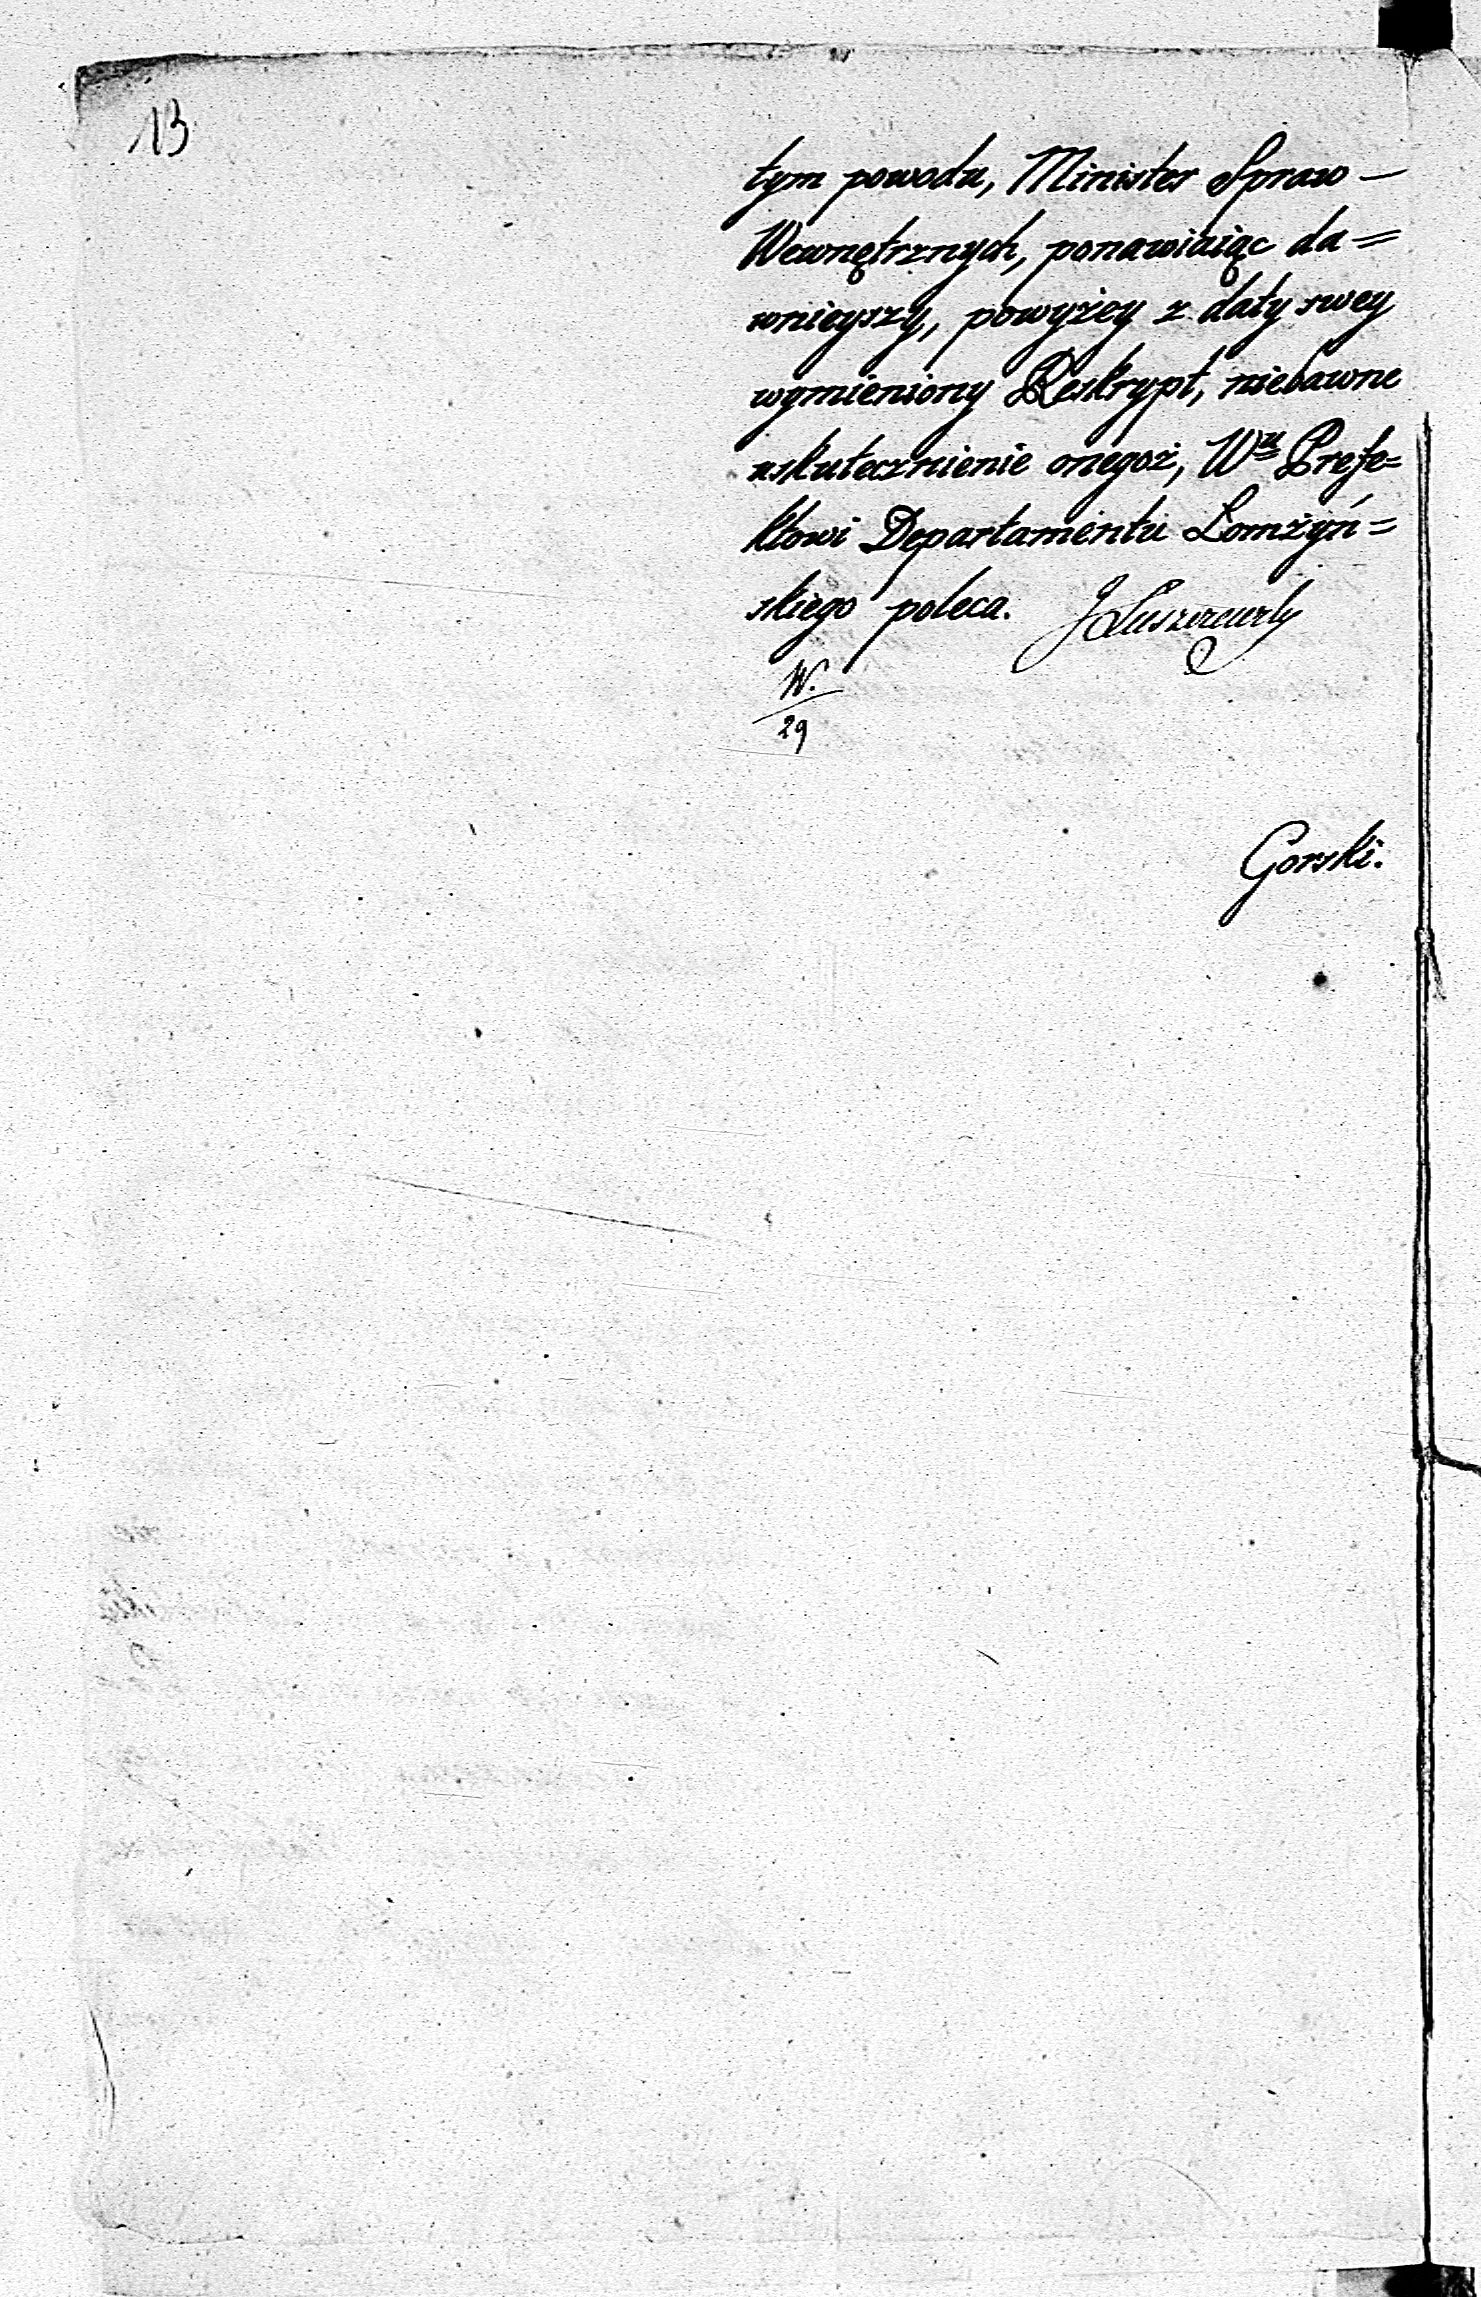 13
tym powodu, Minister Spraw —
Wewnętrznych, ponawiaiąc da=
wnieyszy, powyżey z daty swey
wymieniony Reskrypt, niebawne
uskutecznienie onegoż, Wu Prefe=
ktowi Departamentu Lomżyń=
skiego poleca. J Łuszczewsky
W.
29
Gorski.